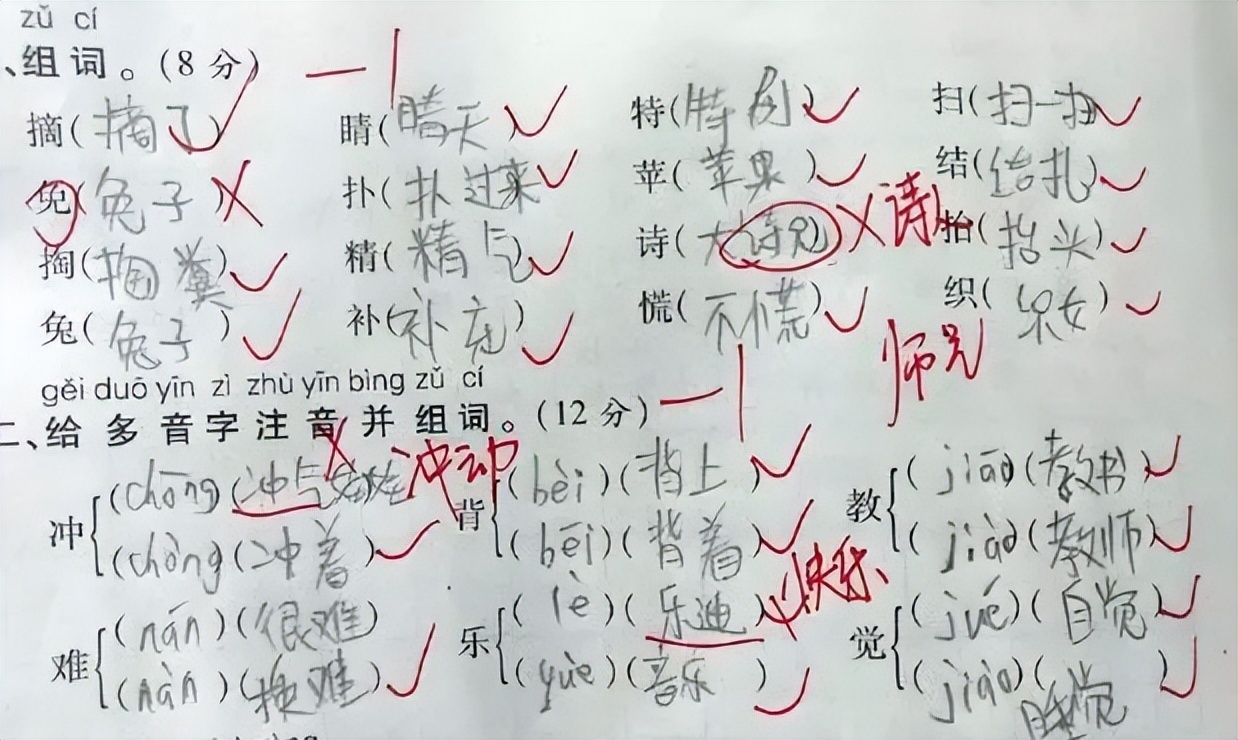 zǔ cí
、组词。(8分) —1
摘(摘了) 睛(晴天) 特(特别) 扫(扫一扫)
免(兔子) 扑(扑过来) 苹(苹果) 结(结扎)
掏(掏粪) 精(精气) 诗(大诗兄) 诗 抬(抬头)
兔(兔子) 补(补充) 慌(不慌) 织(织女)
师兄
gěi duō yīn zì zhù yīn bìng zǔ cí
二、给多音字注音并组词。(12分) —1
冲 (chōng)(冲气娃娃) 冲动 背 (bèi)(背上) 教 (jiāo)(教书)
(chòng)(冲着) (bēi)(背着) (jiào)(教师)
难 (nán)(很难) 乐 (lè)(乐迪) 快乐 觉 (jué)(自觉)
(nàn)(换难) (yuè)(音乐) (jiào)(睡觉)